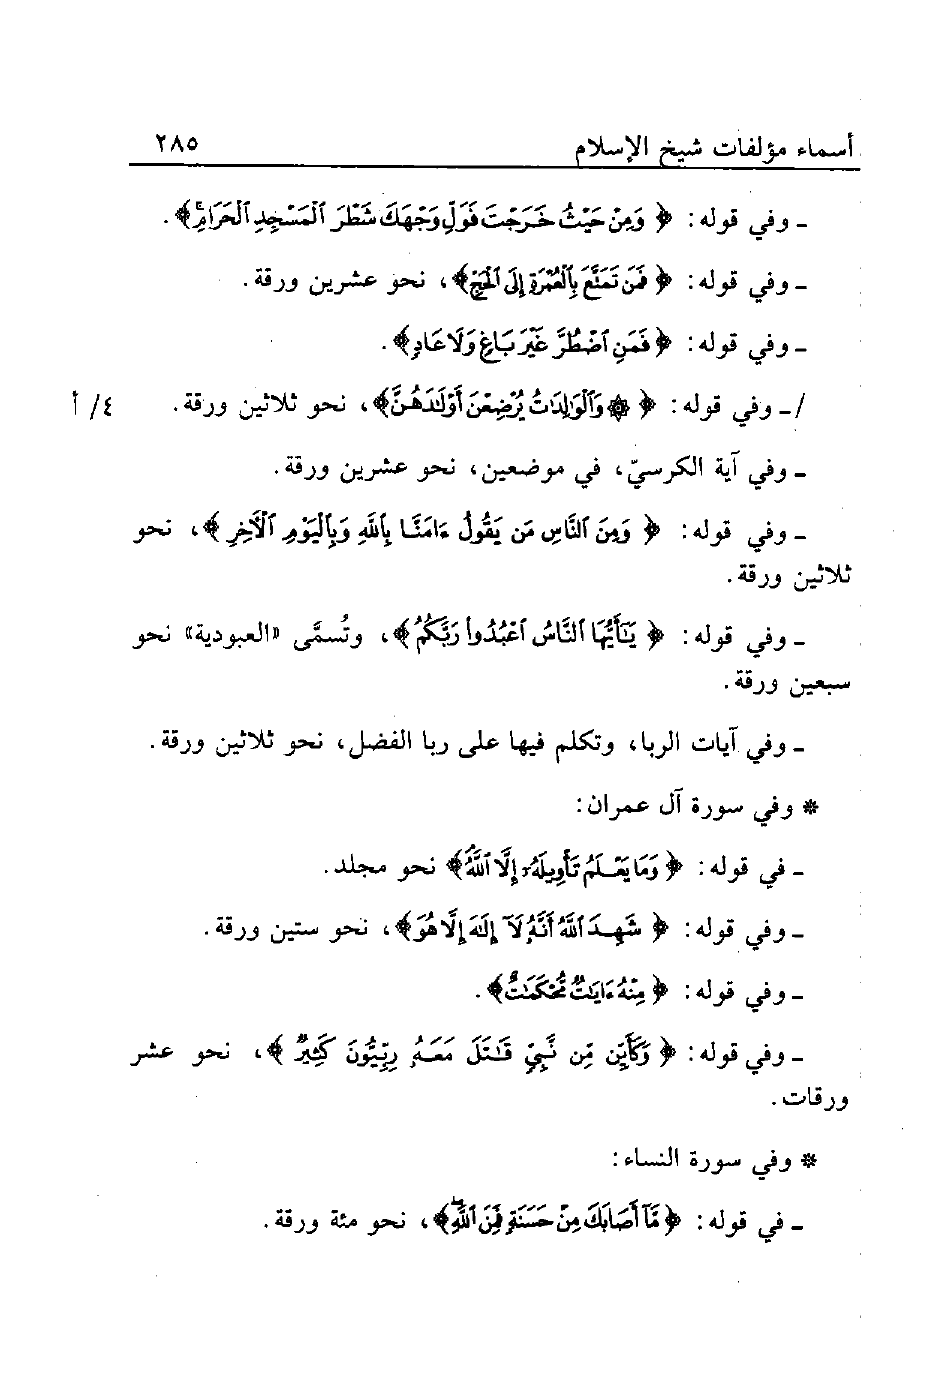 أسماء مؤلفات شيخ الإسلام ٢٨٥
ـ وفي قوله: ﴿ وَمِنْ حَيْثُ خَرَجْتَ فَوَلِّ وَجْهَكَ شَطْرَ ٱلْمَسْجِدِ ٱلْحَرَامِ ﴾.
ـ وفي قوله: ﴿ فَمَن تَمَتَّعَ بِٱلْعُمْرَةِ إِلَى ٱلْحَجِّ ﴾، نحو عشرين ورقة.
ـ وفي قوله: ﴿ فَمَنِ ٱضْطُرَّ غَيْرَ بَاغٍ وَلَا عَادٍ ﴾.
/ ـ وفي قوله: ﴿ ۞ وَٱلْوَٰلِدَٰتُ يُرْضِعْنَ أَوْلَٰدَهُنَّ ﴾، نحو ثلاثين ورقة. ٤/ أ
ـ وفي آية الكرسيّ، في موضعين، نحو عشرين ورقة.
ـ وفي قوله: ﴿ وَمِنَ ٱلنَّاسِ مَن يَقُولُ ءَامَنَّا بِٱللَّهِ وَبِٱلْيَوْمِ ٱلْأَخِرِ ﴾، نحو
ثلاثين ورقة.
ـ وفي قوله: ﴿ يَٰٓأَيُّهَا ٱلنَّاسُ ٱعْبُدُواْ رَبَّكُمُ ﴾، وتُسمَّى «العبودية» نحو
سبعين ورقة.
ـ وفي آيات الربا، وتكلم فيها على ربا الفضل، نحو ثلاثين ورقة.
* وفي سورة آل عمران:
ـ في قوله: ﴿ وَمَا يَعْلَمُ تَأْوِيلَهُۥٓ إِلَّا ٱللَّهُ ﴾ نحو مجلد.
ـ وفي قوله: ﴿ شَهِدَ ٱللَّهُ أَنَّهُۥ لَآ إِلَٰهَ إِلَّا هُوَ ﴾، نحو ستين ورقة.
ـ وفي قوله: ﴿ مِنْهُ ءَايَٰتٌ مُّحْكَمَٰتٌ ﴾.
ـ وفي قوله: ﴿ وَكَأَيِّن مِّن نَّبِيٍّ قَٰتَلَ مَعَهُۥ رِبِّيُّونَ كَثِيرٌ ﴾، نحو عشر
ورقات.
* وفي سورة النساء:
ـ في قوله: ﴿ مَّآ أَصَابَكَ مِنْ حَسَنَةٍ فَمِنَ ٱللَّهِ ﴾، نحو مئة ورقة.